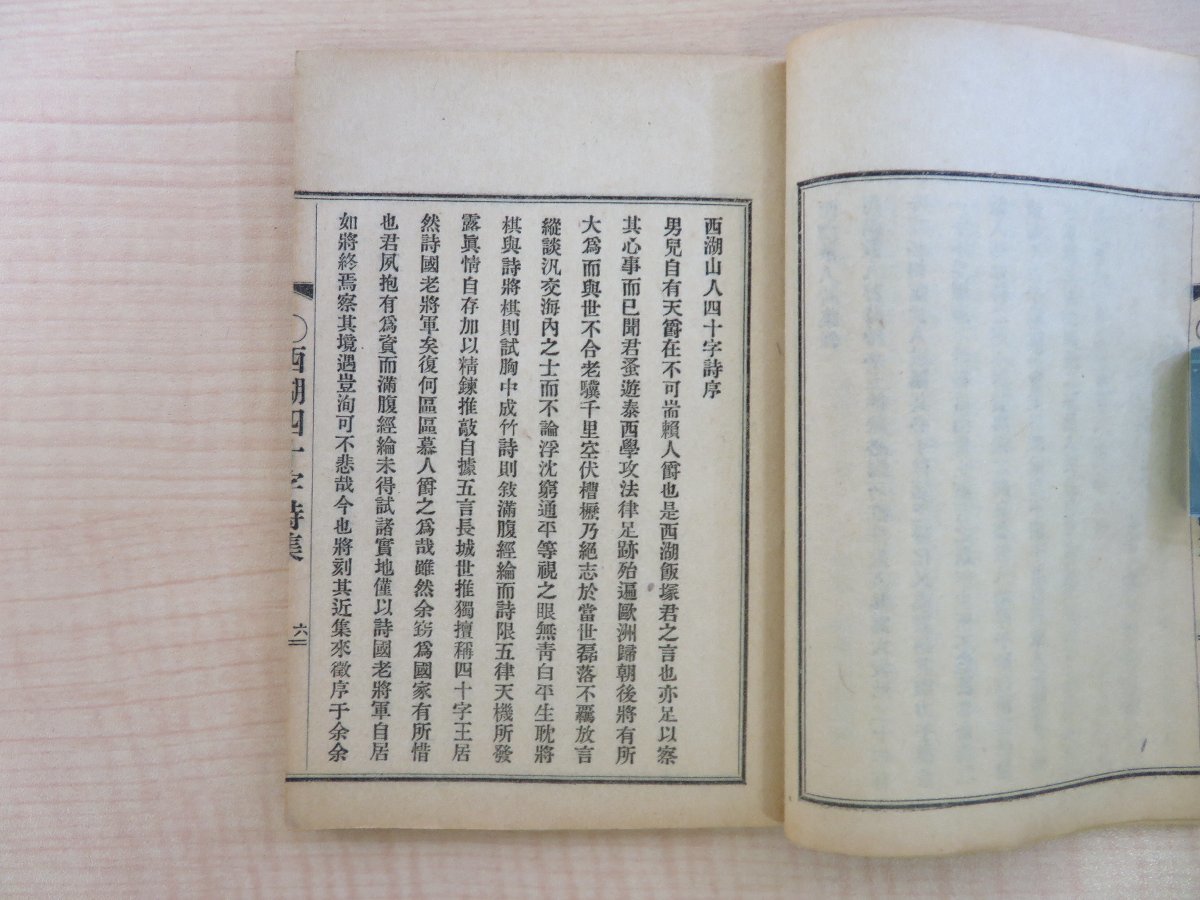 西湖山人四十字詩序
男兒自有天爵在不可耑賴人爵也是西湖飯塚君之言也亦足以察
其心事而已聞君蚤遊泰西學攻法律足跡殆遍歐洲歸朝後將有所
大爲而與世不合老驥千里空伏槽櫪乃絕志於當世磊落不羈放言
縱談汎交海內之士而不論浮沈窮通平等視之眼無靑白平生耽將
棋與詩將棋則試胸中成竹詩則敍滿腹經綸而詩限五律天機所發
露眞情自存加以精鍊推敲自據五言長城世推獨擅稱四十字王居
然詩國老將軍矣復何區區慕人爵之爲哉雖然余窃爲國家有所惜
也君夙抱有爲資而滿腹經綸未得試諸實地僅以詩國老將軍自居
如將終焉察其境遇豈洵可不悲哉今也將刻其近集來徵序于余余
〇西湖四十字詩集
六